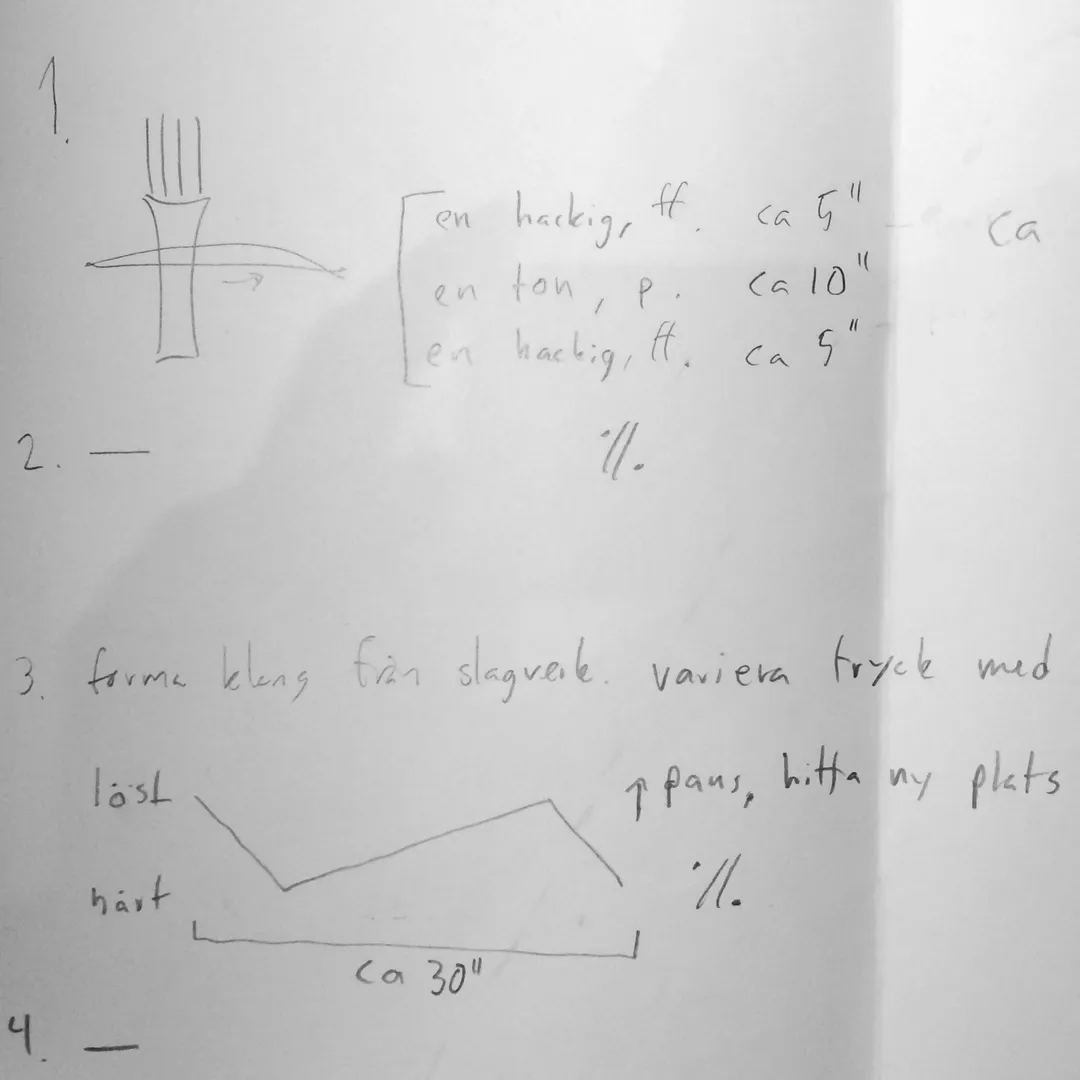 1.
en hackig, ff. ca 5" ca
en ton, p. ca 10"
en hackig, ff. ca 5"
2. —
·//.
3. forma klang från slagverk. variera tryck med
löst ↑ paus, hitta ny plats
hårt ·//.
ca 30"
4. —